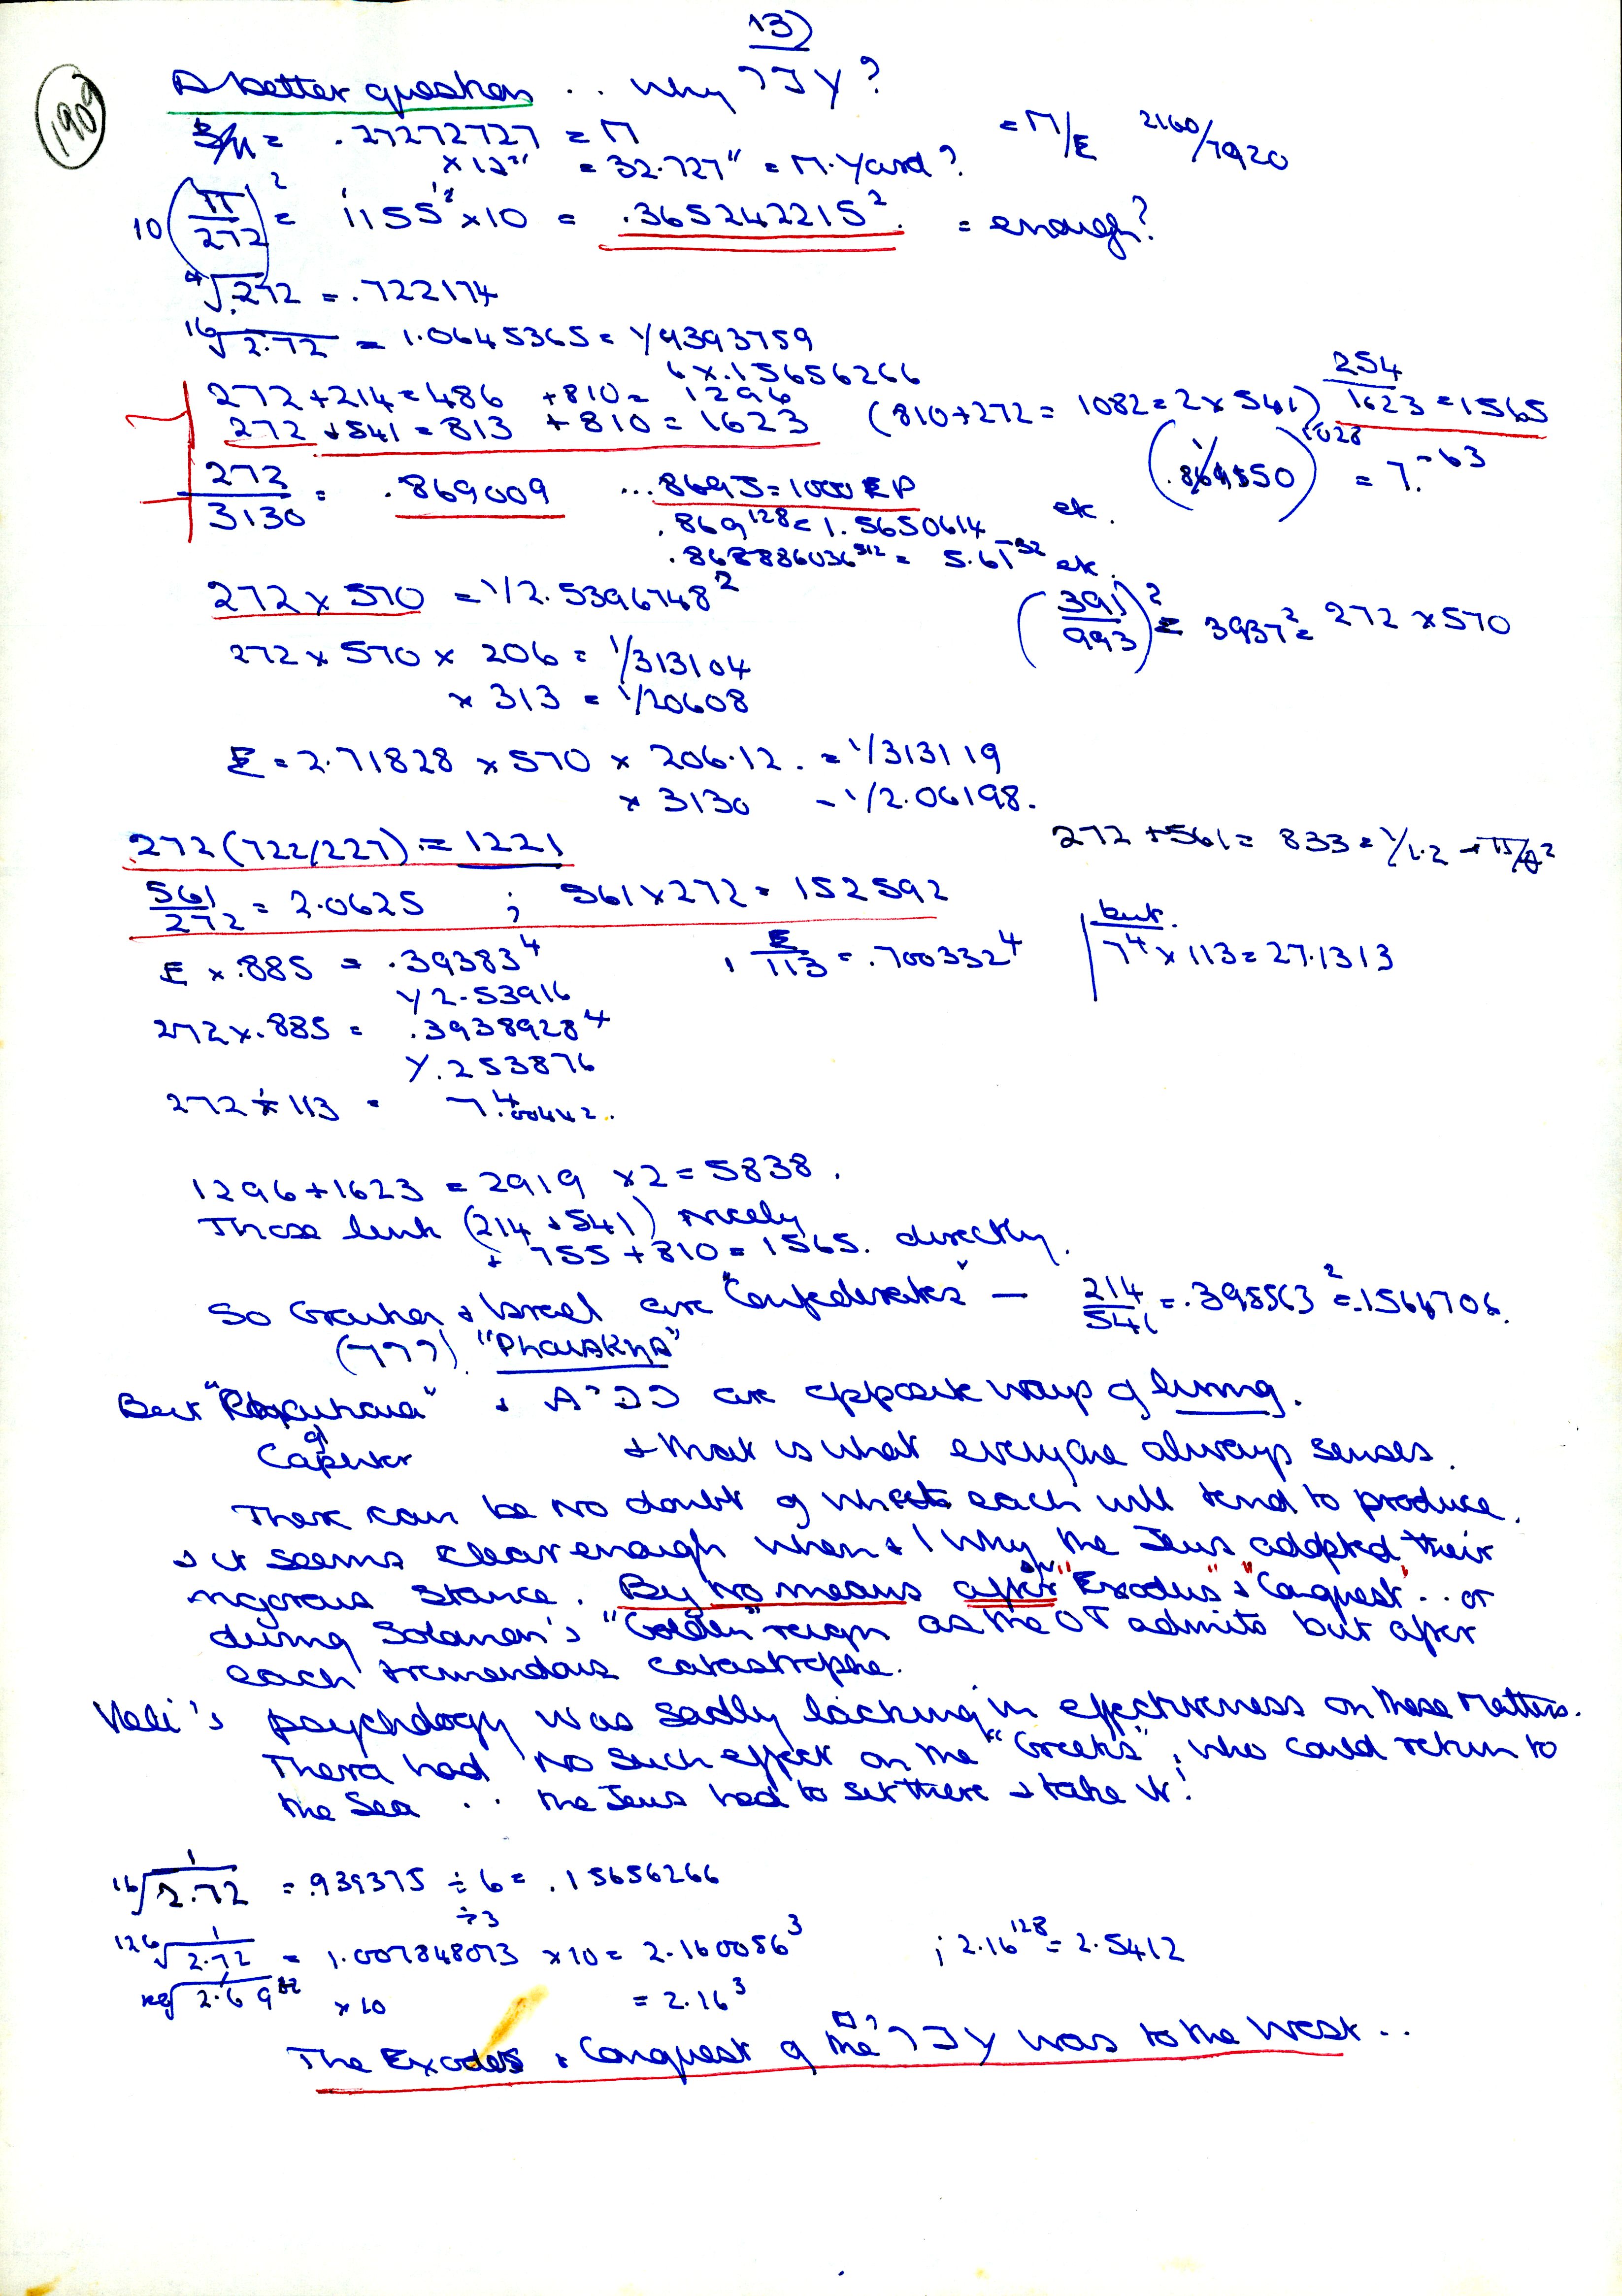 13)
1909
A better question .. why ?JY?
3/11 = .27272727 = M = M/E 2160/7920
x 12" = 32.727" = M.Yard?
10(π/272)² = 1155² x 10 = .365242215². = enough?
⁴√.272 = .722174
¹⁶√2.72 = 1.0645365 = 1/9393759
6 x .15656266
272 + 214 = 486 + 810 = 1296
272 + 541 = 813 + 810 = 1623 (810 + 272 = 1082 = 2 x 541) 254/1623 = 1565
272/3130 = .869009 ... 8695 = 1000 EP = 7.⁻⁶³
.869¹²⁸ = 1.5650614 etc.
.868886036⁵¹² = 5.61⁻³² etc.
272 x 570 = 1/2.5396748² (391/993)² = 3937² = 272 x 570
272 x 570 x 206 = 1/313104
x 313 = 1/20608
E = 2.71828 x 570 x 206.12. = 1/313119
x 3130 = 1/2.06198.
272 (722/227) = 1221 272 + 561 = 833 = 1/1.2
561/272 = 2.0625 ; 561 x 272 = 152592 but
E x .885 = .39383⁴ E/113 = .700332⁴ 7⁴ x 113 = 27.1313
1/2.53916
272 x .885 = .3938928⁴
1/.253876
272 ÷ 113 = 7.⁴00442.
1296 + 1623 = 2919 x 2 = 5838.
These link (214 + 541) nicely
+ 755 + 810 = 1565. directly.
So + Israel are "Confederates" — 214/541 = .395563² = .1564706.
(777) "PharAKhA"
But " " + are opposite ways of living.
of
+ that is what everyone always senses.
There can be no doubt of what each will tend to produce.
+ it seems clear enough when + why the Jews adopted their
rigorous stance. By no means after "Exodus" + "Conquest" .. or
during Solomon's "Golden" reign as the OT admits but after
each tremendous catastrophe.
Veli's psychology was sadly lacking in effectiveness on these matters.
Thera had no such effect on the "Greeks", who could return to
the Sea .. the Jews had to sit there + take it!
¹⁶√1/2.72 = .939375 ÷ 6 = .15656266
÷ 3
¹²⁶√1/2.72 = 1.007848073 x 10 = 2.160056³ ; 2.16¹²⁸ = 2.5412
x 10 = 2.16³
The Exodus + Conquest of the ?JY was to the West ..